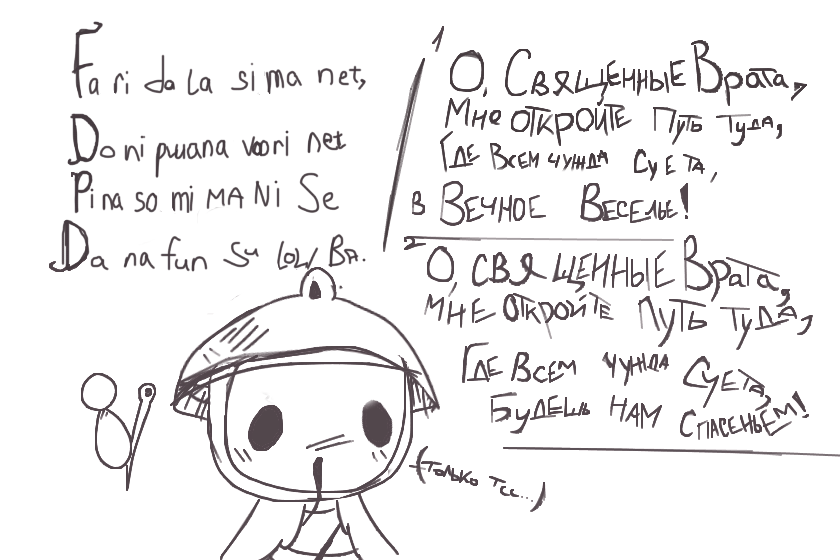 Fa ri da la si ma net,
Do ni pwana voori net
Pi na so mi MA Ni Se
Da na fun Su low BA.
1
О, Священные Врата,
Мне откройте Путь туда,
Где Всем чужда суета,
В Вечное Веселье!
2
О, священные Врата,
Мне откройте Путь туда,
Где Всем чужда Суета,
Будешь нам Спасеньем!
(только тсс...)